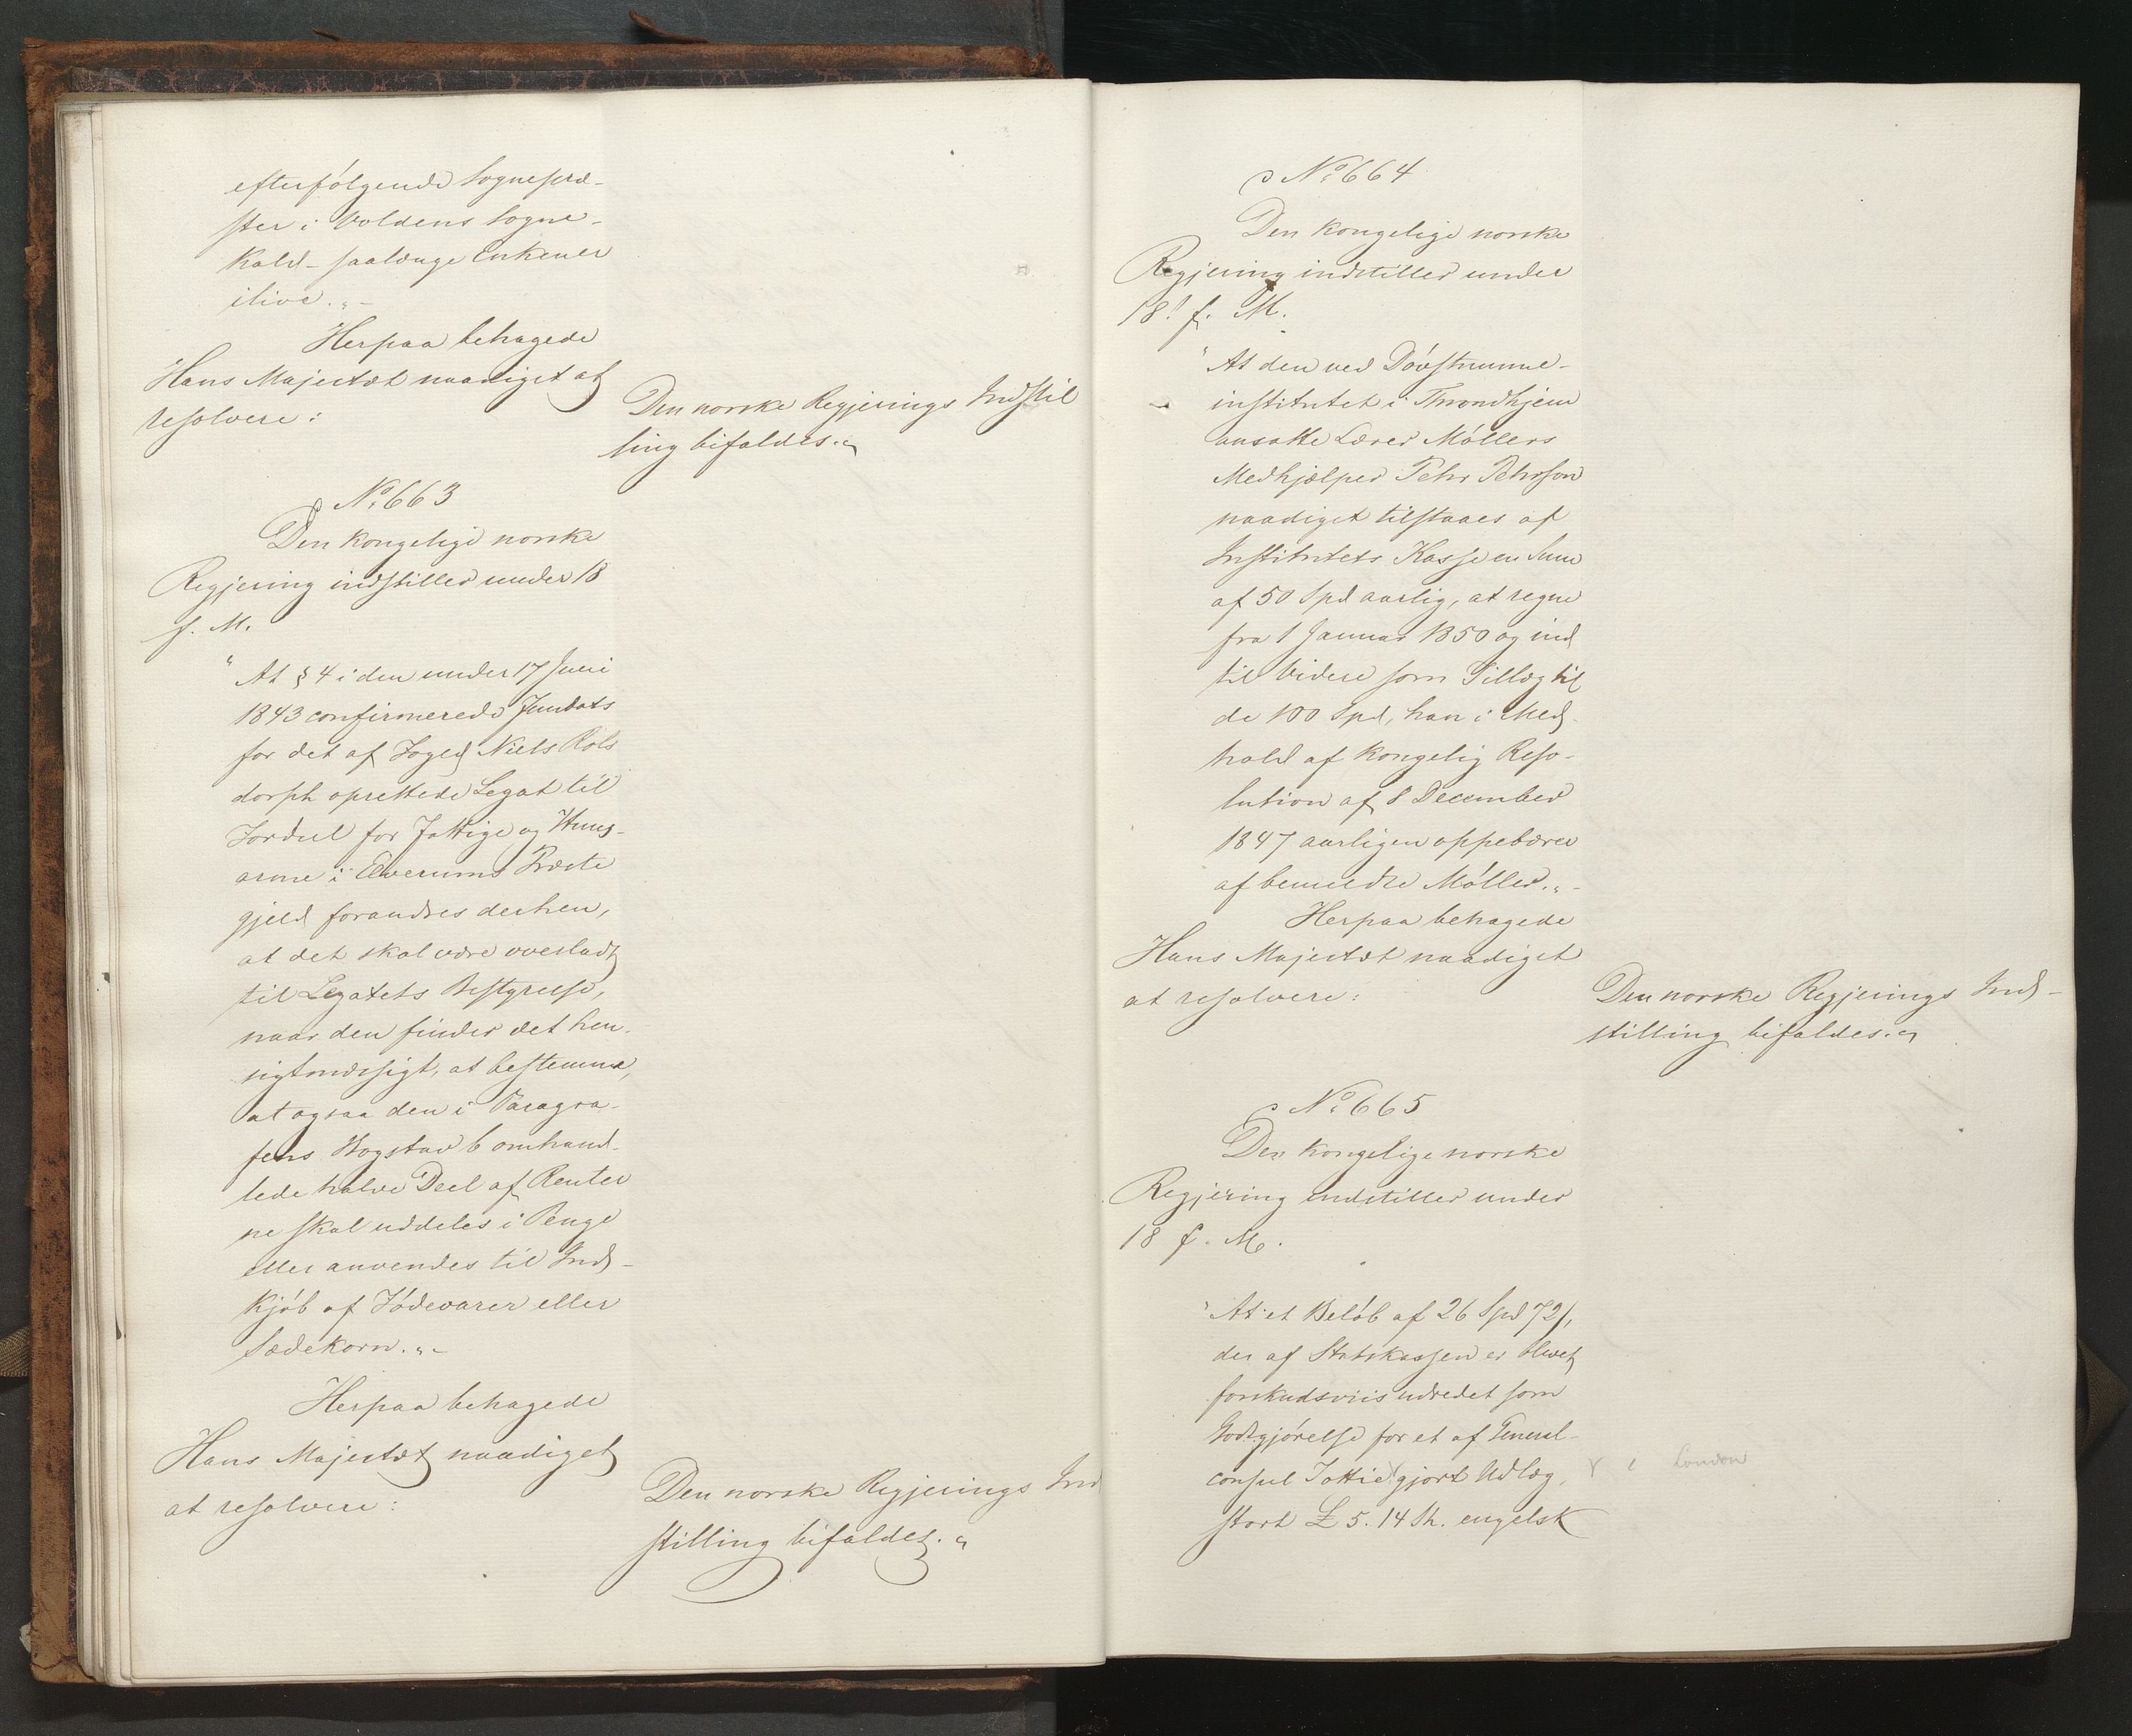 efterfølgende Sognepræ-
ster i Voldens Sogne-
kald – saalænge Enken er
ilive."-
Herpaa behagede
Hans Majestæt naadigst at
resolvere:
Den norske Regjerings Indstil
ling bifaldes."
No. 663
Den kongelige norske
Regjering indstiller under 18
f. M.
"At § 4 i den under 17 Juni
1843 confirmerede Fundats
for det af Foged Niels Rols
dorph oprettede Legat til
Fordeel for Fattige og Huus-
arme i Elverums Præste
gjeld forandres derhen,
at det skal være overladt
til Legatets Bestyrelse,
naar den finder det hen-
sigtsmæssigt, at bestemme,
at ogsaa den i Paragra-
fens Bogstav b omhand-
lede halve Deel af Renter
ne skal uddeles i Penge
eller anvendes til Ind-
kjøb af Fødevarer eller
Sædekorn."-
Herpaa behagede
Hans Majestæt naadigst
at resolvere:
Den norske Regjerings Ind
stilling bifaldes."
No. 664
Den kongelige norske
Regjering indstiller under
18 f. M.
"At den ved Døvstumme-
institutet i Throndhjem
ansatte Lærer Møllers
Medhjælper Pehr Pehrson
naadigst tilstaaes af
Institutets Kasse en Sum
af 50 Spd aarlig, at regne
fra 1 Januar 1850 og ind
til Videre som Tillæg til
de 100 Spd, han i Med-
hold af kongelig Reso-
lution af 8 December
1847 aarligen oppebærer
af bemeldte Møller."-
Herpaa behagede
Hans Majestæt naadigst
at resolvere:
Den norske Regjerings Ind-
stilling bifaldes."
No. 665
Den kongelige norske
Regjering indstiller under
18 f. M.
"At et Beløb af 26 Spd 72 s,
der af Statskassen er blevet
forskudsviis udredet som
Godtgjørelse for et af General-
consul Tottie gjort Udlæg,
i London
stort £ 5. 14 Sh. engelsk